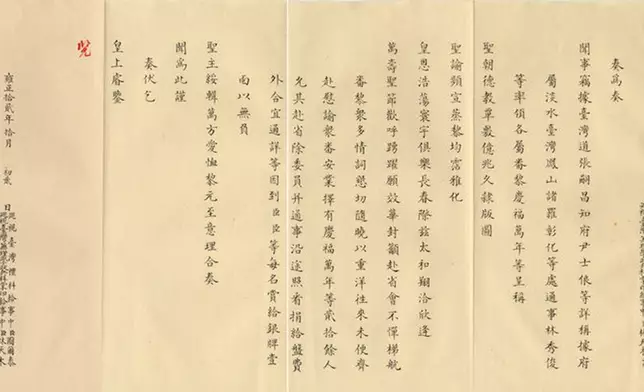 奏為奏
聞事竊據臺灣道張嗣昌知府尹士俍等詳稱據府
屬淡水臺灣鳳山諸羅彰化等處通事林秀俊
等率領各屬番黎慶福萬年等呈稱
聖朝德教覃敷億兆久隸版圖
聖諭頻宣蒸黎均霑雅化
皇恩浩蕩寰宇俱樂長春際茲太和翔洽欣逢
萬壽聖節歡呼踴躍願效華封籲赴省會不憚梯航
番黎衆多情詞懇切隨曉以重洋往來未便齊
赴慰諭衆番安業擇有慶福萬年等貳拾餘人
允其赴省除委員并通事沿途照看捐給盤費
外合宜通詳等因到臣臣等每名賞給銀牌壹
面以無負
聖主綏輯萬方愛恤黎元至意理合奏
聞為此謹
奏伏乞
皇上睿鑒
覽
雍正拾貳年拾月初貳日
巡視臺灣禮科給事中臣圖爾泰
林天木